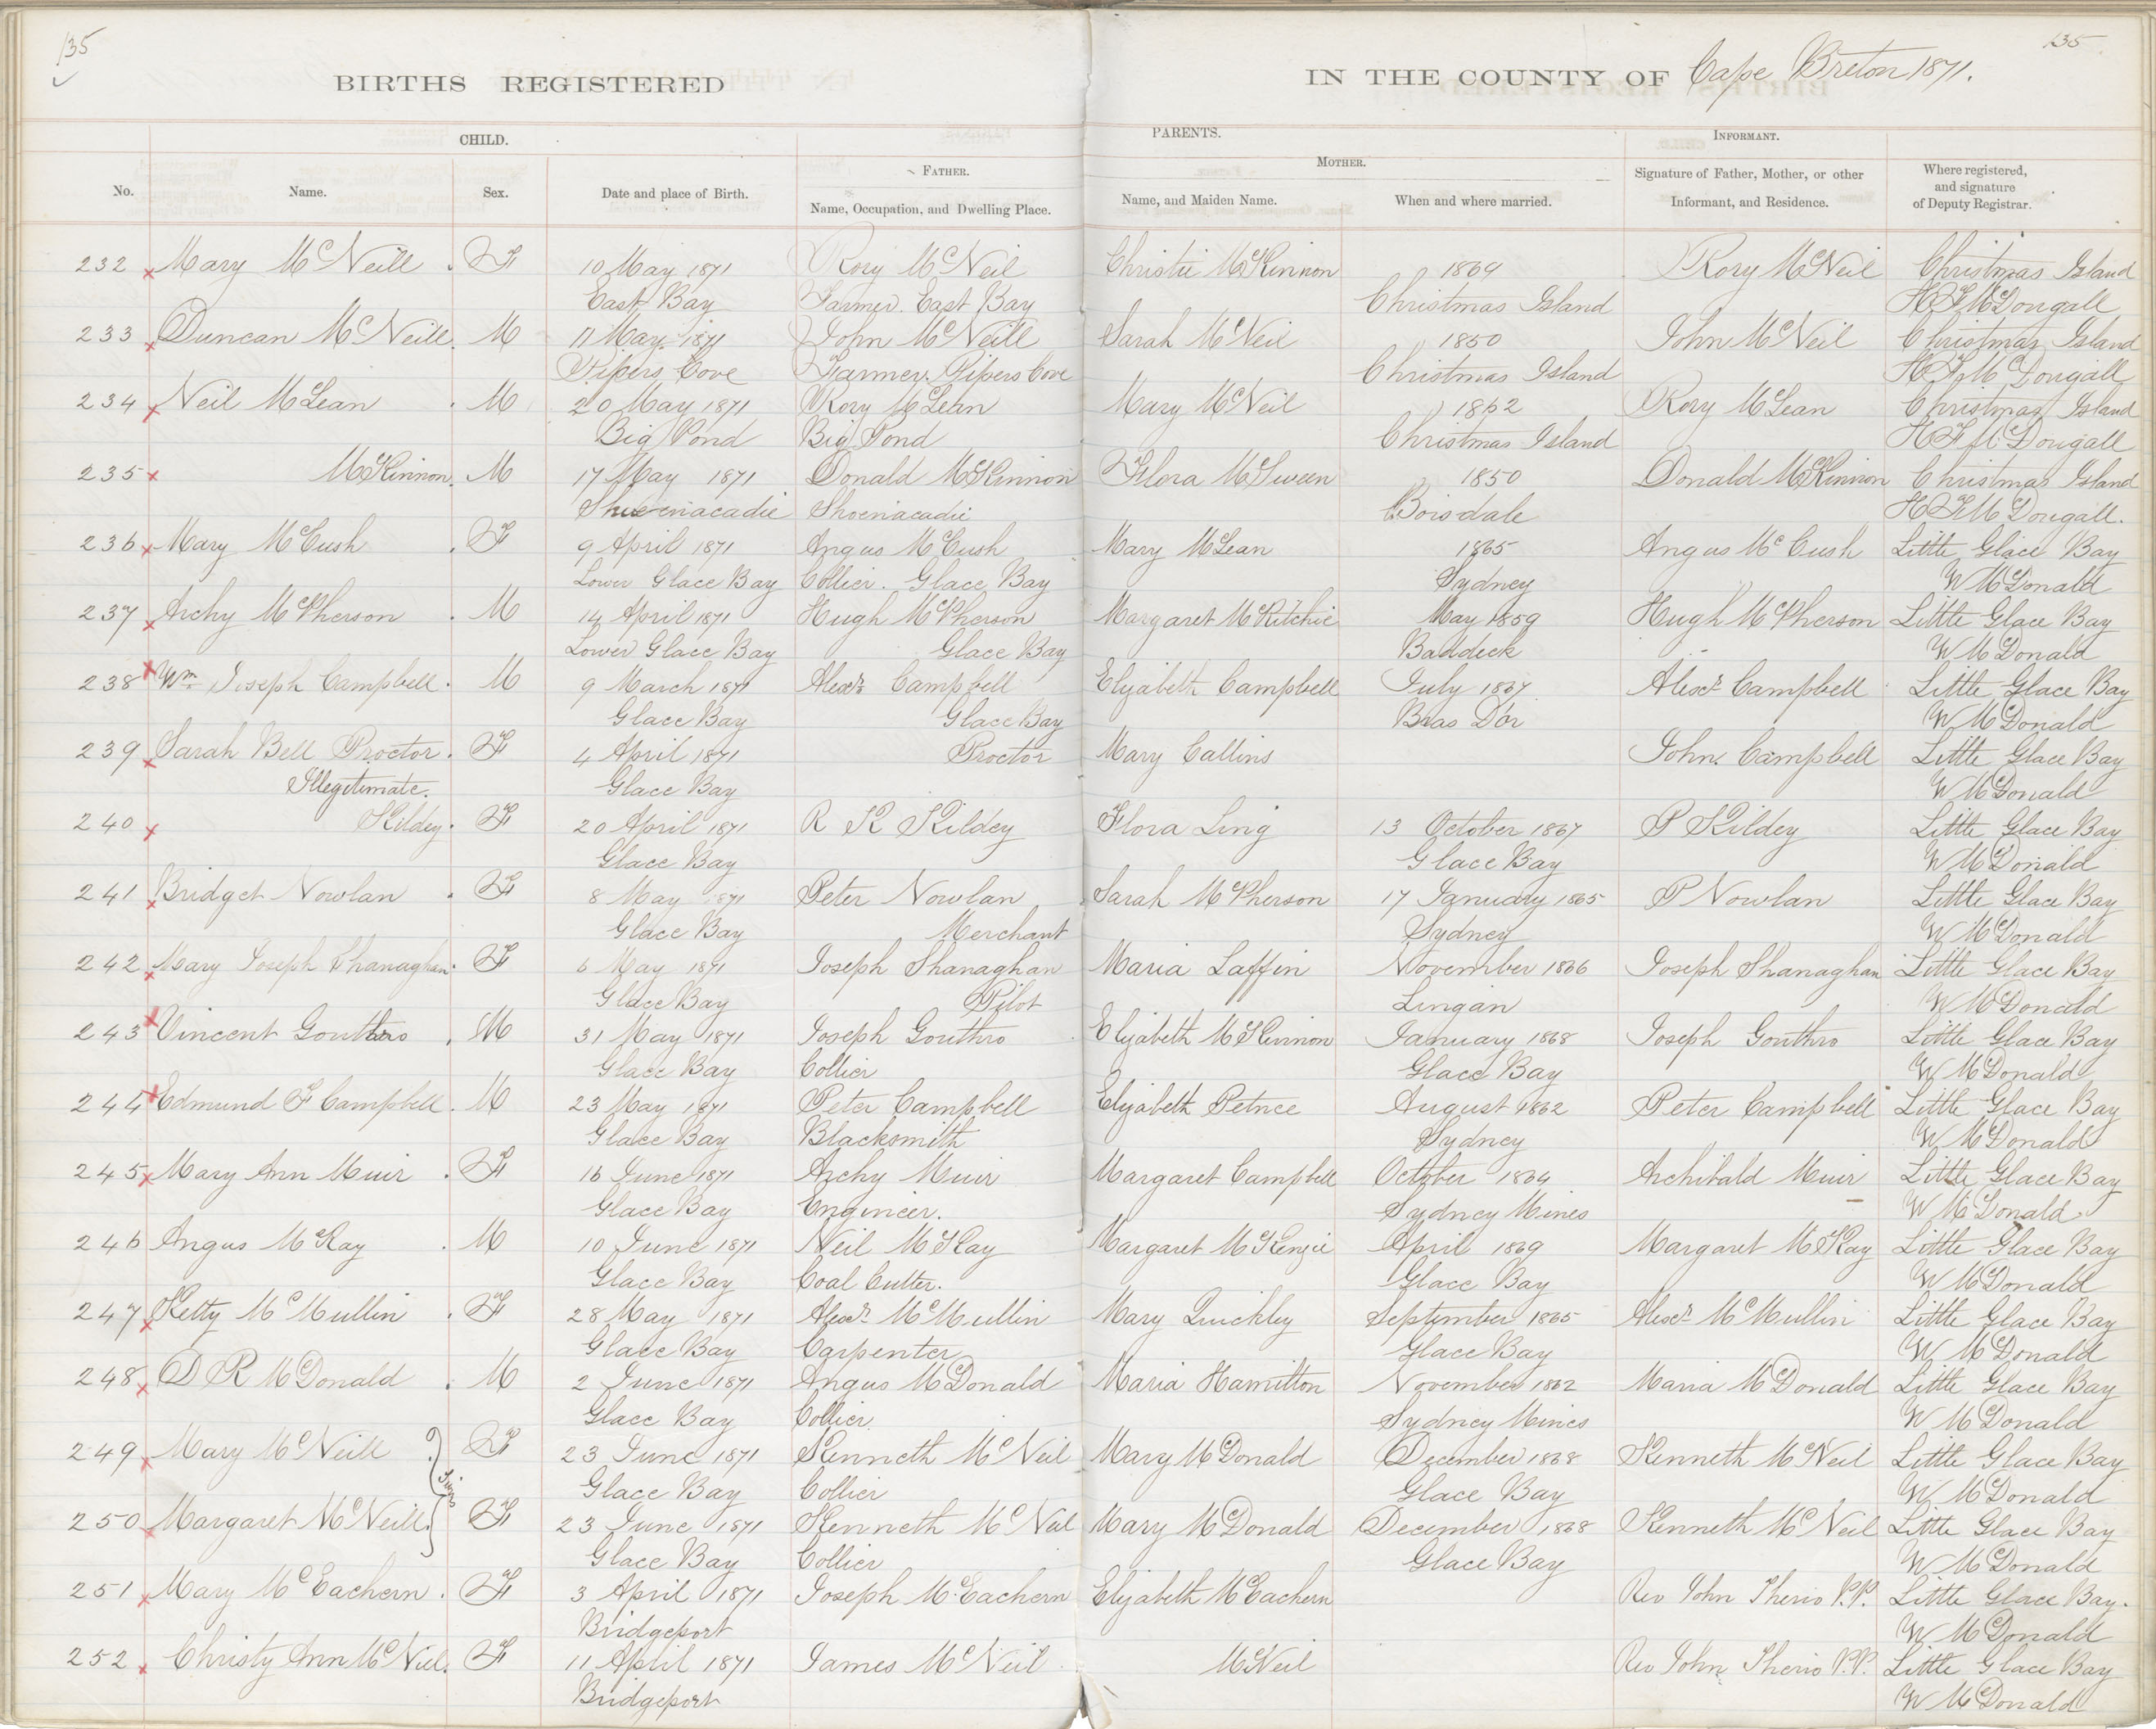 135
135
BIRTHS REGISTERED IN THE COUNTY OF Cape Breton 1871.
CHILD. PARENTS. INFORMANT.
FATHER. MOTHER.
No. Name. Sex. Date and place of Birth. Name, Occupation, and Dwelling Place. Name, and Maiden Name. When and where married. Signature of Father, Mother, or other Informant, and Residence. Where registered, and signature of Deputy Registrar.
232 Mary McNeill F 10 May 1871 Rory McNeil Christie McKinnon 1869 Rory McNeil Christmas Island
East Bay Farmer. East Bay Christmas Island H F McDougall
233 Duncan McNeill M 11 May 1871 John McNeill Sarah McNeil 1850 John McNeil Christmas Island
Pipers Cove Farmer. Pipers Cove Christmas Island H F McDougall
234 Neil McLean M 20 May 1871 Rory McLean Mary McNeil 1862 Rory McLean Christmas Island
Big Pond Big Pond Christmas Island H F McDougall
235 McKinnon M 17 May 1871 Donald McKinnon Flora McSween 1850 Donald McKinnon Christmas Island
Shoenacadie Boisdale H F McDougall.
236 Mary McCush F 9 April 1871 Angus McCush Mary McLean 1865 Angus McCush Little Glace Bay
Lower Glace Bay Collier. Glace Bay Sydney W McDonald
237 Archy McPherson M 14 April 1871 Hugh McPherson Margaret McRitchie May 1859 Hugh McPherson Little Glace Bay
Lower Glace Bay Glace Bay Baddeck W McDonald
238 Wm. Joseph Campbell M 9 March 1871 Alexr. Campbell Elizabeth Campbell July 1867 Alexr. Campbell Little Glace Bay
Glace Bay Glace Bay Bras D'or W McDonald
239 Sarah Bell Proctor F 4 April 1871 Proctor Mary Callins John Campbell Little Glace Bay
Illegitimate. Glace Bay W McDonald
240 Kildey F 20 April 1871 R K Kildey Flora Ling 13 October 1867 P Kildey Little Glace Bay
Glace Bay Glace Bay W McDonald
241 Bridget Nowlan F 8 May 1871 Peter Nowlan Sarah McPherson 17 January 1865 P Nowlan Little Glace Bay
Glace Bay Merchant Sydney W McDonald
242 Mary Joseph Shanaghan F 6 May 1871 Joseph Shanaghan Maria Laffin November 1866 Joseph Shanaghan Little Glace Bay
Glace Bay Pilot Lingan W McDonald
243 Vincent Gouthro M 31 May 1871 Joseph Gouthro Elizabeth McKinnon January 1868 Joseph Gouthro Little Glace Bay
Glace Bay Collier Glace Bay W McDonald
244 Edmund F Campbell M 23 May 1871 Peter Campbell Elizabeth Petrice August 1862 Peter Campbell Little Glace Bay
Glace Bay Blacksmith Sydney W McDonald
245 Mary Ann Muir F 16 June 1871 Archy Muir Margaret Campbell October 1864 Archibald Muir Little Glace Bay
Glace Bay Engineer. Sydney Mines W McDonald
246 Angus McKay M 10 June 1871 Neil McKay Margaret McKenzie April 1869 Margaret McKay Little Glace Bay
Glace Bay Coal Cutter. Glace Bay W McDonald
247 Ketty McMullin F 28 May 1871 Alexr. McMullin Mary Quickley September 1865 Alexr. McMullin Little Glace Bay
Glace Bay Carpenter Glace Bay W McDonald
248 D R McDonald M 2 June 1871 Angus McDonald Maria Hamilton November 1862 Maria McDonald Little Glace Bay
Glace Bay Collier Sydney Mines W McDonald
249 Mary McNeill F 23 June 1871 Kenneth McNeil Mary McDonald December 1868 Kenneth McNeil Little Glace Bay
Twins Glace Bay Collier Glace Bay W McDonald
250 Margaret McNeill F 23 June 1871 Kenneth McNeil Mary McDonald December 1868 Kenneth McNeil Little Glace Bay
Glace Bay Collier Glace Bay W McDonald
251 Mary McEachern F 3 April 1871 Joseph McEachern Elizabeth McEachern Rev John Therio P.P. Little Glace Bay.
Bridgeport W McDonald
252 Christy Ann McNeil F 11 April 1871 James McNeil McNeil Rev John Therio P.P. Little Glace Bay
Bridgeport W McDonald